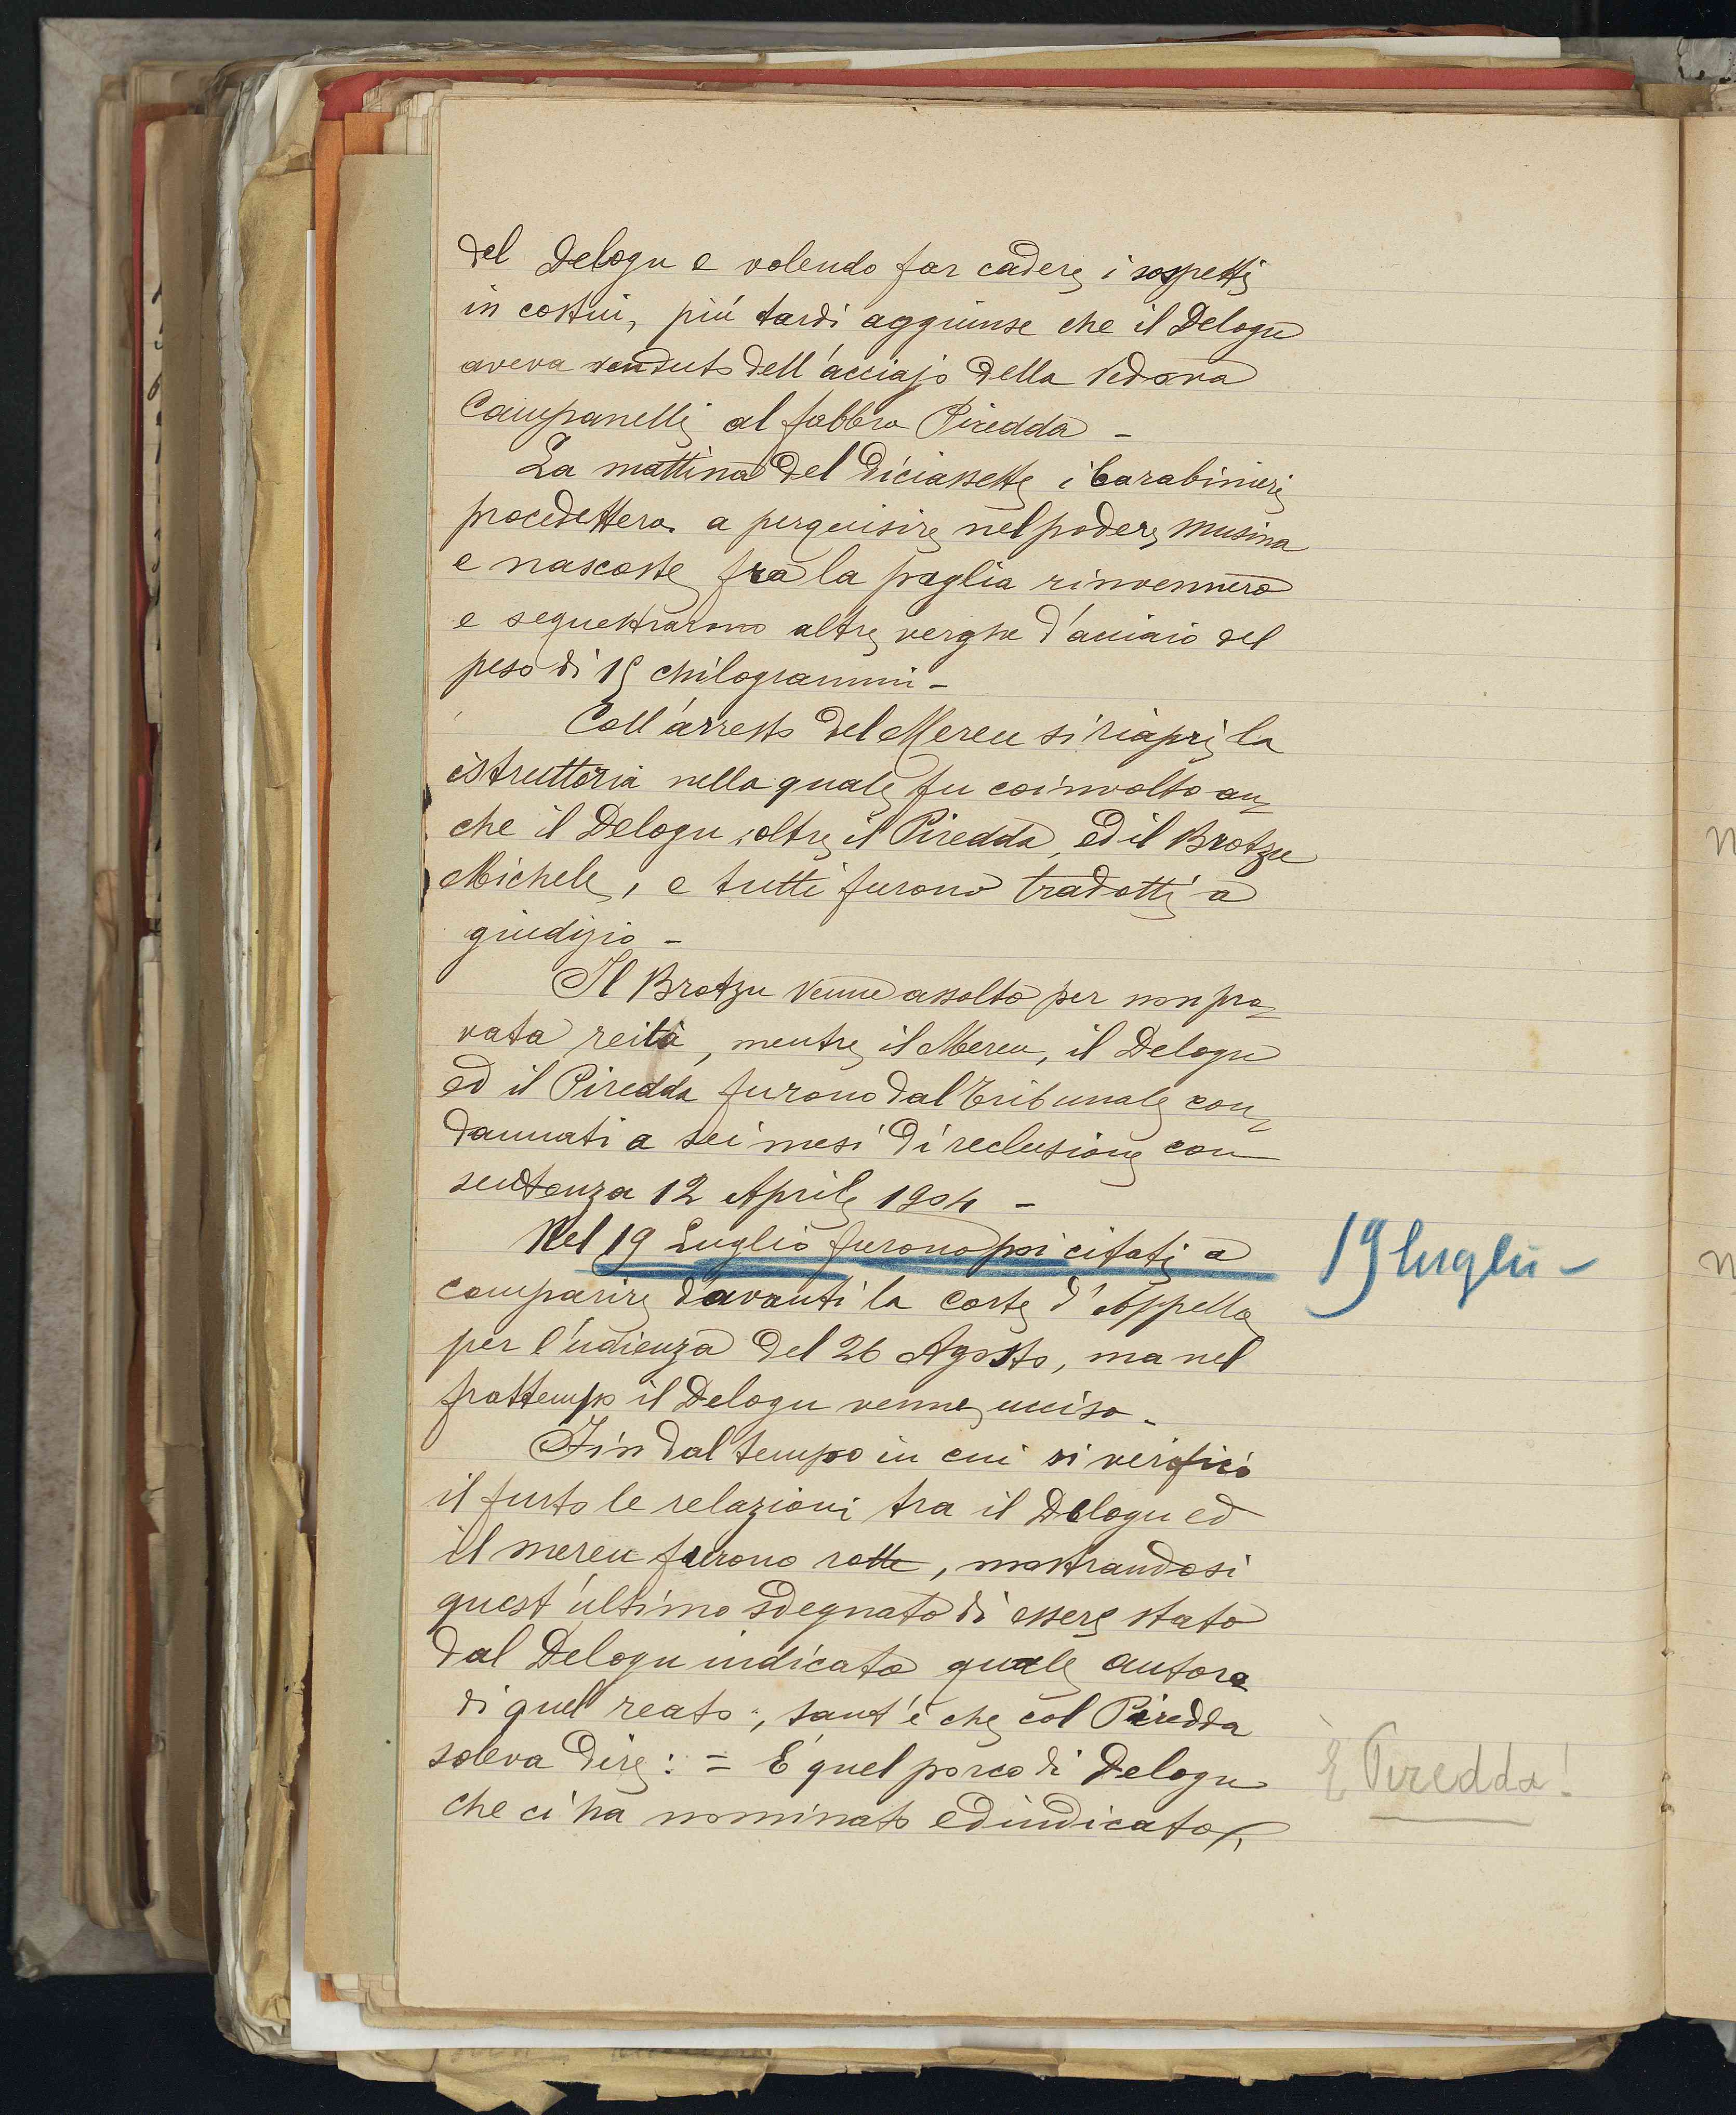 del Delogu e volendo far cadere i sospetti
in costui, più tardi aggiunse che il Delogu
aveva venduto dell'acciajo della Vedova
Campanelli al fabbro Piredda -
La mattina del diciassette i Carabinieri
procedettero a perquisire nel podere Musina
e nascoste fra la paglia rinvennero
e sequestrarono altre verghe d'acciaio del
peso di 15 chilogrammi -
Coll'arresto del Mereu si riaprì la
istruttoria nella quale fu coinvolto an-
che il Delogu, oltre il Piredda, ed il Brotzu
Michele, e tutti furono tradotti a
giudizio -
Il Brotzu venne assolto per non pro-
vata reità, mentre il Mereu, il Delogu
ed il Piredda furono dal Tribunale con-
dannati a sei mesi di reclusione con
sentenza 12 Aprile 1904 -
Nel 19 Luglio furono poi citati a
19 luglio -
comparire davanti la Corte d'Appello
per l'udienza del 26 Agosto, ma nel
frattempo il Delogu venne ucciso -
Fin dal tempo in cui si verificò
il furto le relazioni tra il Delogu ed
il Mereu furono rotte, mostrandosi
quest'ultimo sdegnato di essere stato
dal Delogu indicato quale autore
di quel reato, tant'è che col Piredda
soleva dire: = È quel porco di Delogu
È Piredda!
che ci ha nominato ed indicato,